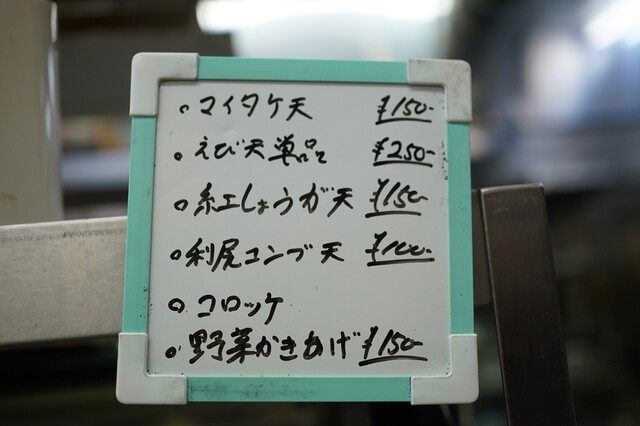 ○マイタケ天 ¥150-
○えび天単品 ¥250-
○紅しょうが天 ¥150-
○利尻コンブ天 ¥100-
○コロッケ
○野菜かきあげ ¥150-